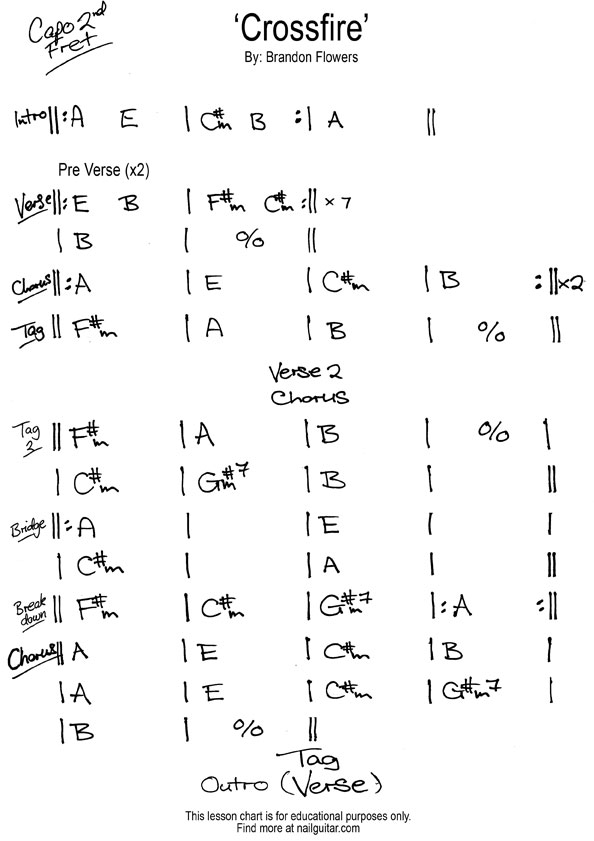 Capo 2nd
Fret
'Crossfire'
By: Brandon Flowers
Intro ||: A E | C#m B :| A ||
Pre Verse (x2)
Verse ||: E B | F#m C#m :|| x 7
| B | % ||
Chorus ||: A | E | C#m | B :|| x2
Tag || F#m | A | B | % ||
Verse 2
Chorus
Tag 2 || F#m | A | B | % |
| C#m | G#m7 | B | ||
Bridge ||: A | | E | |
| C#m | | A | ||
Break down || F#m | C#m | G#m7 |: A :||
Chorus || A | E | C#m | B |
| A | E | C#m | G#m7 |
| B | % ||
Tag
Outro (Verse)
This lesson chart is for educational purposes only.
Find more at nailguitar.com